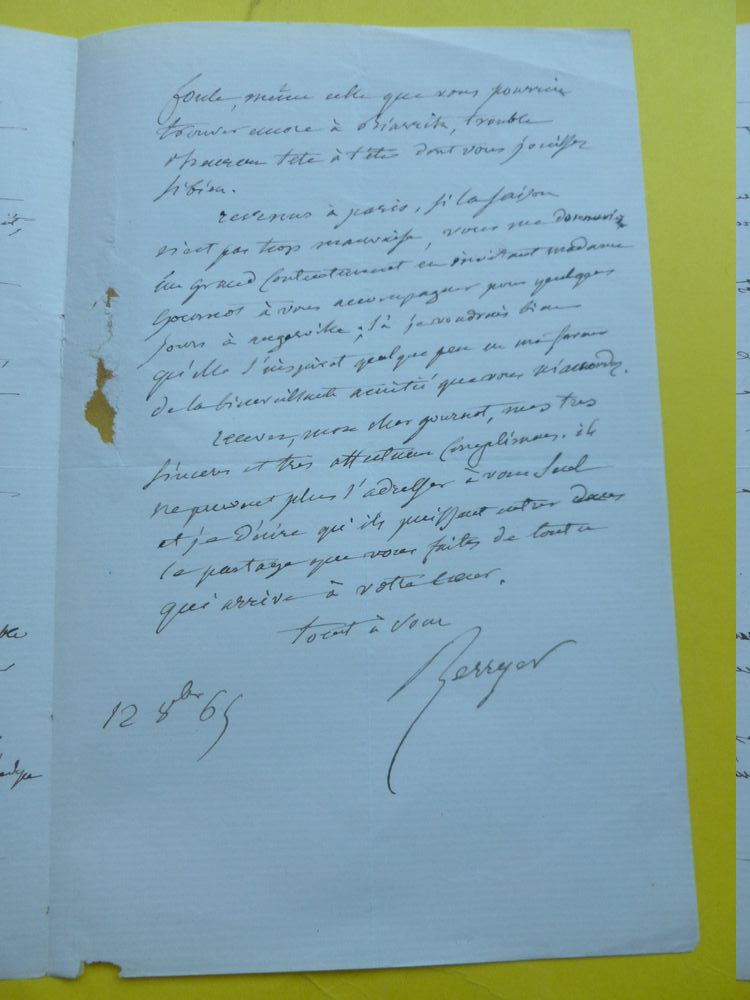 foule, même celle que vous pourriez
trouver encore à Biarritz, trouble
l'heureux tête à tête dont vous jouissez
si bien.
revenus à paris, si la saison
n'est pas trop mauvaise, vous me donneriez
un grand contentement en invitant madame
gournot à vous accompagner pour quelques
jours à augerville ; là je voudrais bien
qu'elle s'inspirat quelque peu en ma faveur
de la bienveillante amitié que vous m'accordez.
recevez, mon cher gournot, mes très
sincères et très affectueux complimens. ils
ne peuvent plus s'adresser à vous seul
et je désire qu'ils puissent entrer dans
le partage que vous faites de tout ce
qui arrive à votre coeur.
tout à vous
Berryer
12 8bre 65